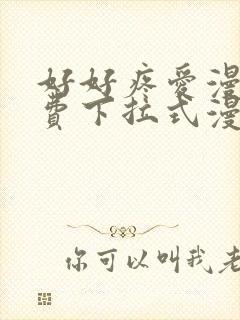 好好疼愛漫
費下拉式漫
你可以叫我老